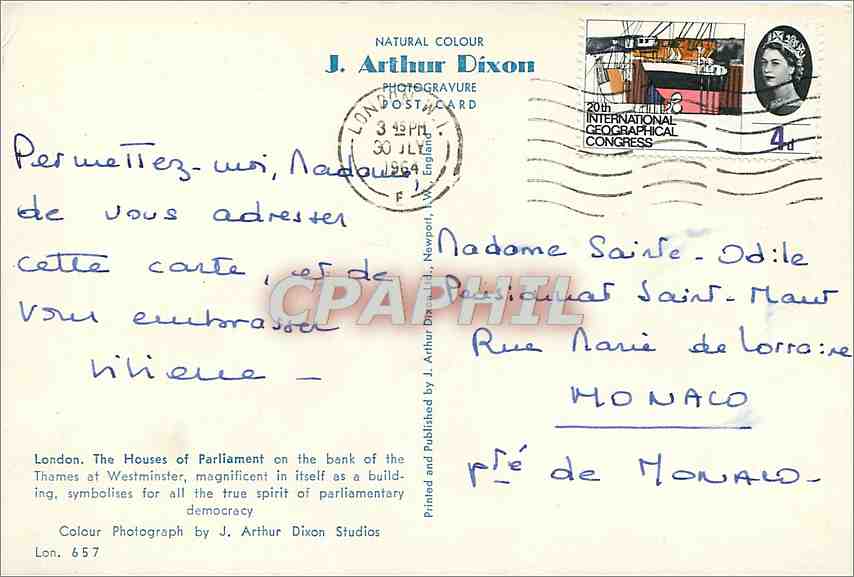 NATURAL COLOUR
J. Arthur Dixon
PHOTOGRAVURE
POST CARD
LONDON W.1.
3 45 PM
30 JLY
1964
F
20th
INTERNATIONAL
GEOGRAPHICAL
CONGRESS
4d
Permettez-moi, Madame,
de vous adresser
cette carte, et de
vous embrasser
Viviane _
Madame Sainte-Odile
Pensionnat Saint-Maur
Rue Marie de Lorraine
MONACO
pté de MONACO-
CPAPHIL
London. The Houses of Parliament on the bank of the
Thames at Westminster, magnificent in itself as a build-
ing, symbolises for all the true spirit of parliamentary
democracy
Colour Photograph by J. Arthur Dixon Studios
Lon. 657
Printed and Published by J. Arthur Dixon Ltd., Newport, I.W., England